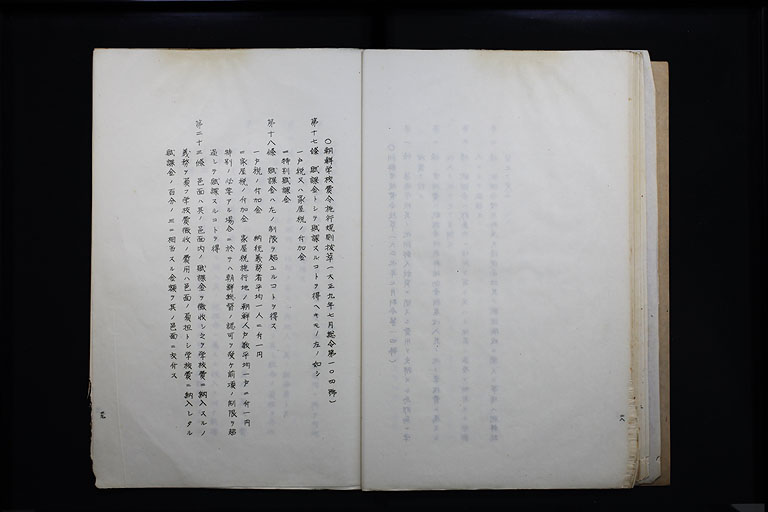 ○朝鮮学校費令施行規則抜萃(大正九年七月総令第一〇四號)
第十七條 賦課金トシテ賦課スルコトヲ得ヘキモノ左ノ如シ
一戸税又ハ家屋税ノ附加金
二特別賦課金
第十八條 賦課金ハ左ノ制限ヲ超ユルコトヲ得ス
一戸税ノ附加金 納税義務者平均一人ニ付一円
二家屋税ノ附加金 家屋税施行地ノ朝鮮人戸数平均一戸ニ付一円
特別ノ必要アル場合ニ於テハ朝鮮総督ノ認可ヲ受ケ前項ノ制限ヲ超
過シテ賦課スルコトヲ得
第二十二條 邑面ハ其ノ邑面内ノ賦課金ヲ徴収シ之ヲ学校費ニ納入スルノ
義務ヲ負フ学校費徴収ノ費用ハ邑面ノ負担トシ学校費ニ納入シタル
賦課金ノ百分ノ三ニ相当スル金額ヲ其ノ邑面ニ交付ス